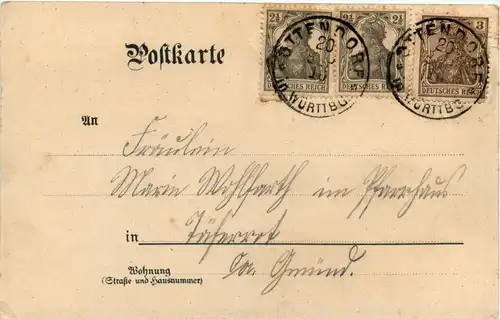 2½ 2½ 3
OTTENDORF
20
WÜRTTBG
OTTENDORF
20
WÜRTTBG
DEUTSCHES REICH DEUTSCHES REICH DEUTSCHES REICH
Postkarte
An
Fräulein
Marie Wohlfarth im Pfarrhaus
in Täferrot
Oa. Gmünd.
Wohnung
(Straße und Hausnummer)